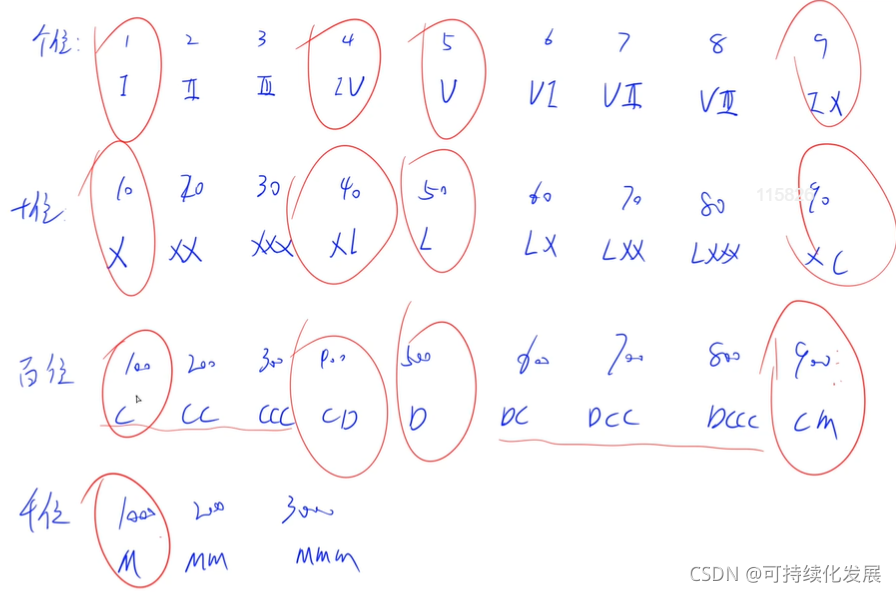 个位: 1 2 3 4 5 6 7 8 9
I II III IV V VI VII VIII IX
十位: 10 20 30 40 50 60 70 80 90
X XX XXX XL L LX LXX LXXX XC
115826
百位 100 200 300 400 500 600 700 800 900
C CC CCC CD D DC DCC DCCC CM
千位 1000 200 3000
M MM MMM
CSDN @可持续化发展